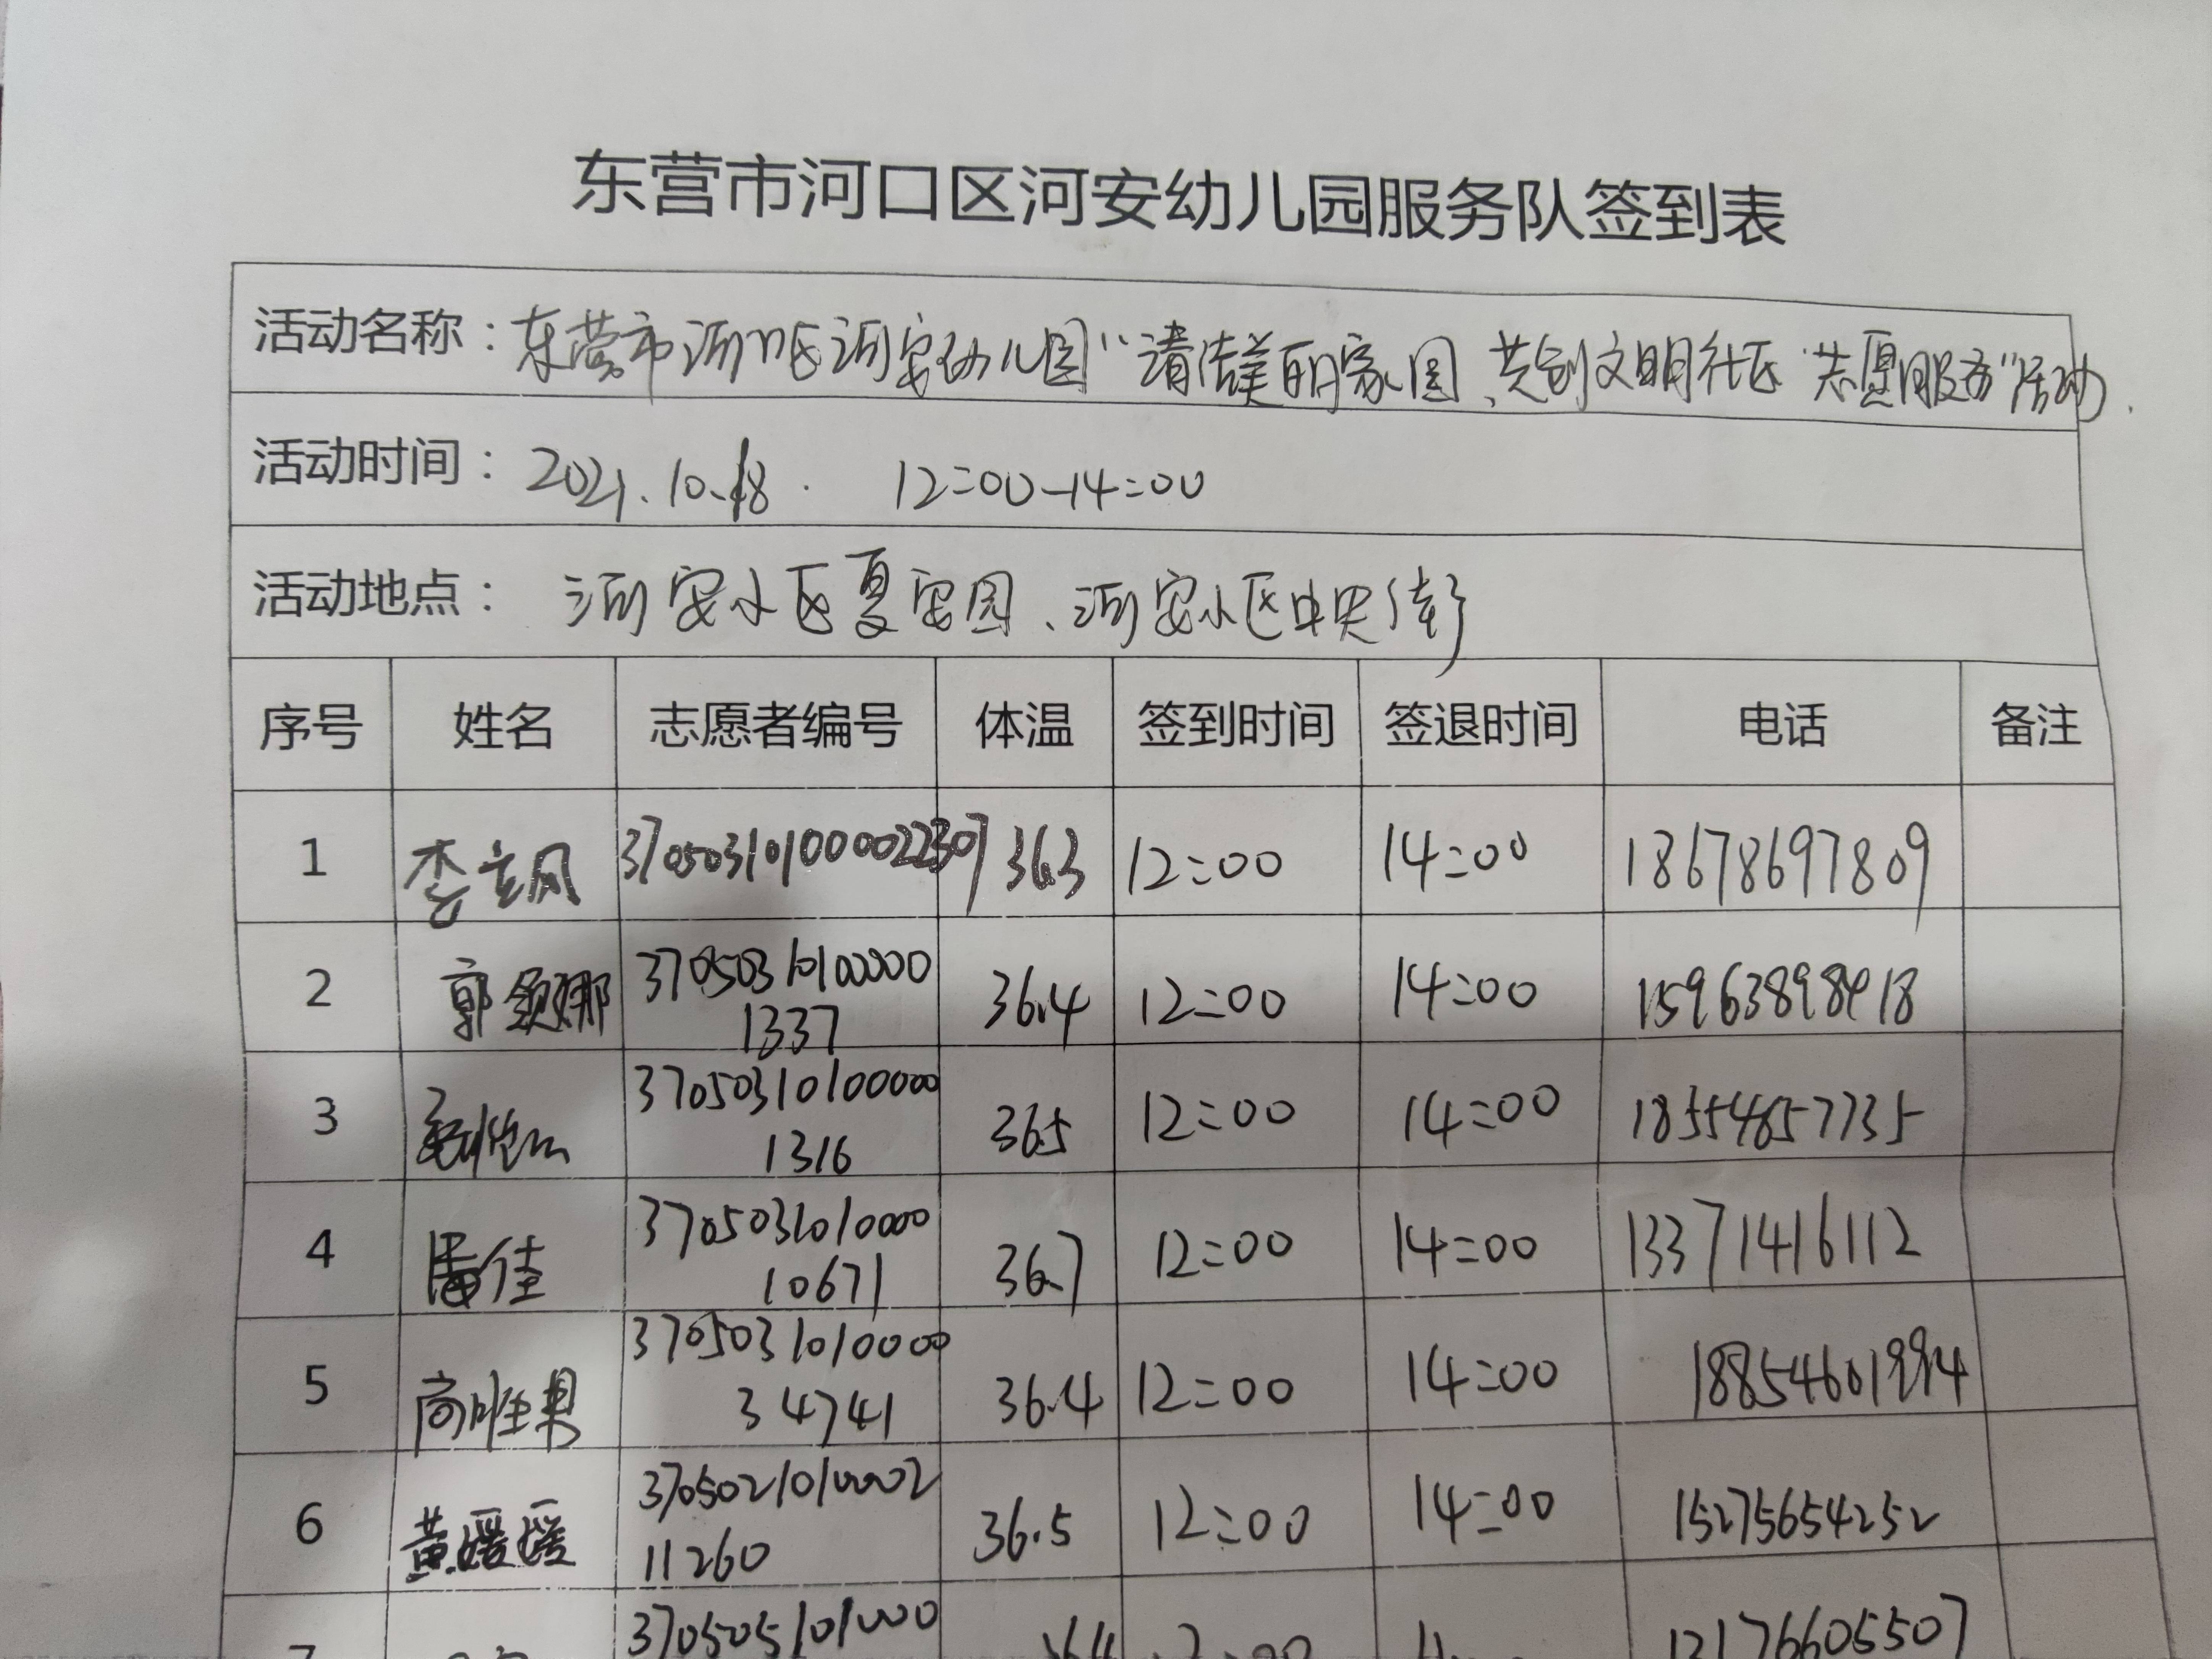 东营市河口区河安幼儿园服务队签到表
活动名称：东营市河口区河安幼儿园“清洁美丽家园、共创文明社区”志愿服务”活动.
活动时间：2021.10.18. 12:00-14:00
活动地点：河安小区夏安园、河安小区中央街
序号 姓名 志愿者编号 体温 签到时间 签退时间 电话 备注
1 李立凤 370503101000022307 36.3 12:00 14:00 18678697809
2 郭领娜 37050310100000 36.4 12:00 14:00 15963898418
1337
3 37050310100000 36.5 12:00 14:00 18554657735
1316
4 潘佳 3705031010000 36.7 12:00 14:00 13371416112
10671
5 3705031010000 36.4 12:00 14:00
34741
6 黄媛媛 3705021010002 36.5 12:00 14:00 15275654252
11260
7 370505101000 12:00 13176605507